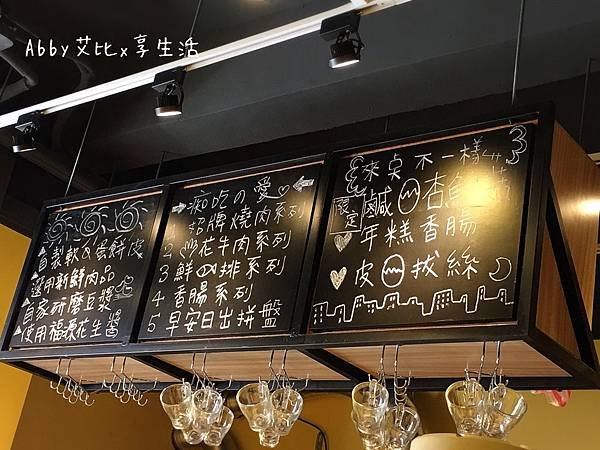 Abby艾比x享生活
自製軟Q蛋餅皮
選用新鮮肉品
自家研磨豆漿
使用福源花生醬
痴吃の愛
1 招牌燒肉系列
2 沙茶牛肉系列
3 鮮 排系列
4 香腸系列
5 早安日出拼盤
來 不一樣
限定
鹹 杏鮑
年糕香腸
皮 拔絲